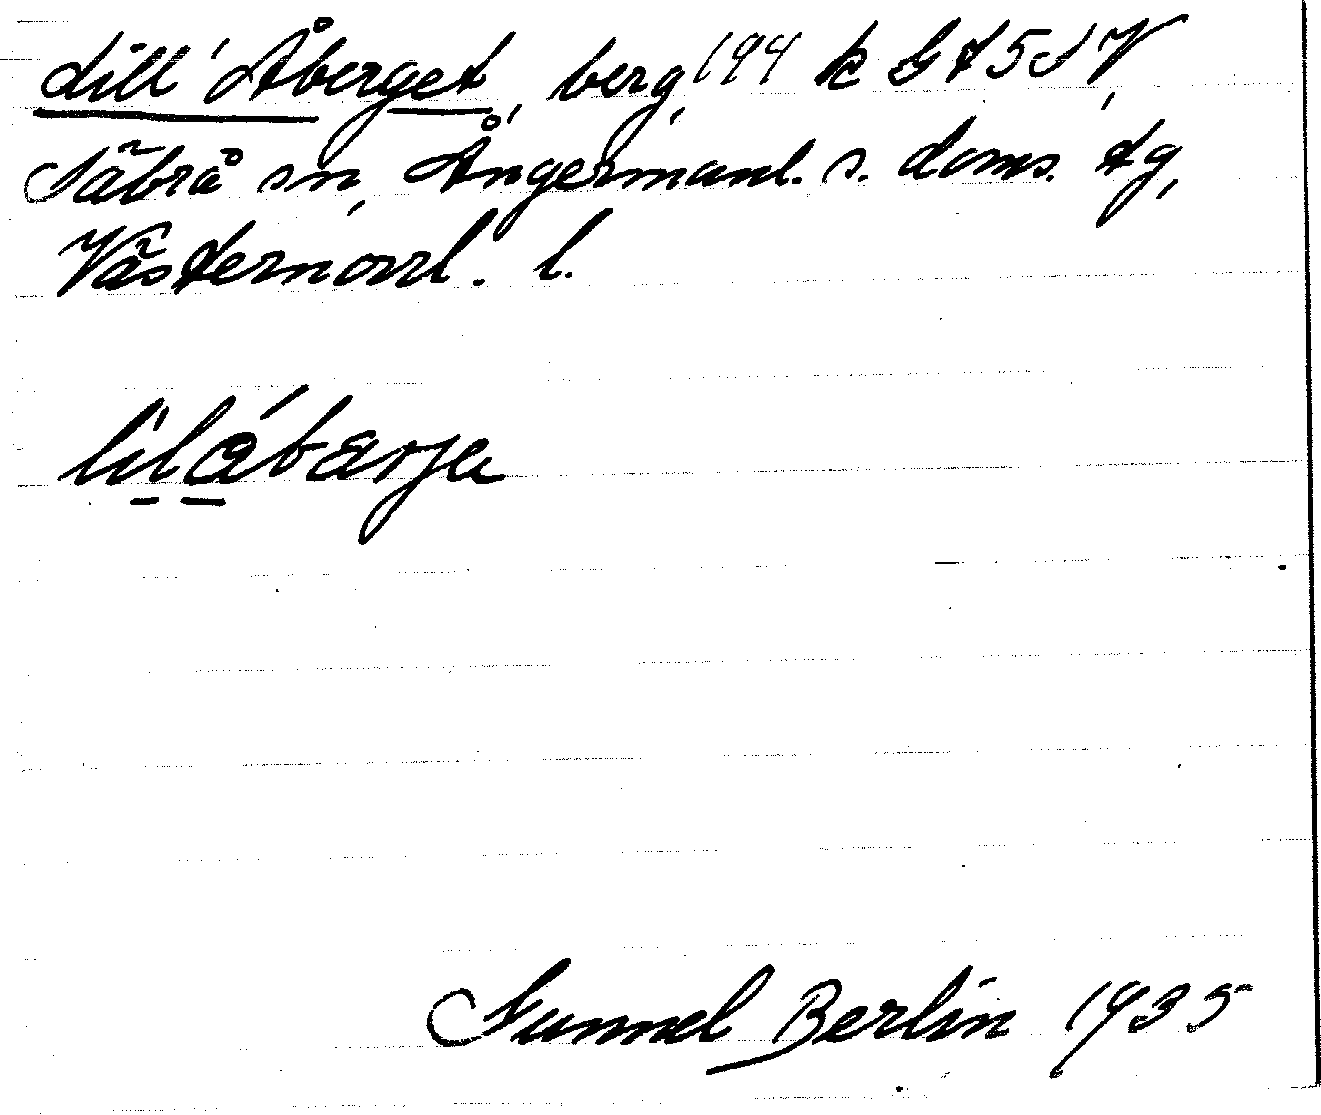 Lill'Åberget, berg, 194 k G t 5 S V,
Säbrå sn, Ångermanl. s. doms. tg,
Västernorrl. l.
lilåbærja
Gunnel Berlin 1935